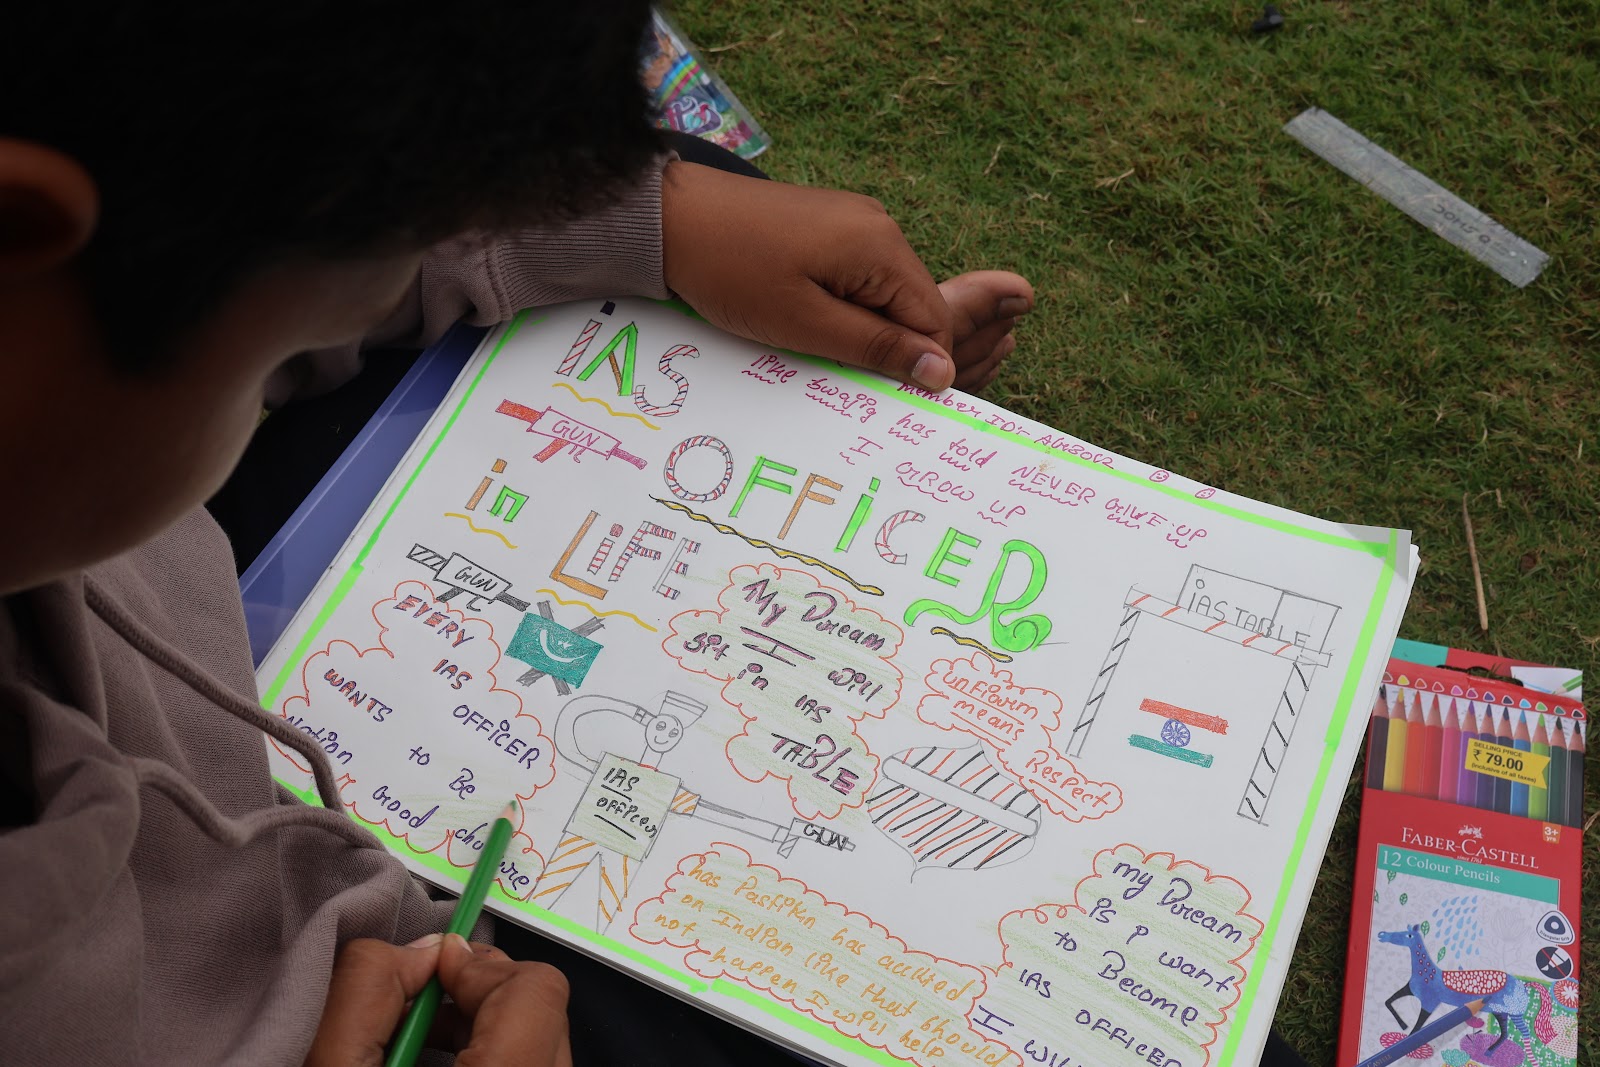 iAS
OFFICER
in
LiFE
member ID:-
like swajig has told NEVER GIVE UP
I GROW UP
GUN
GUN
EVERY IAS
WANTS OFFICER
Nation to Be
Good
My Dream
I will
Sit in IAS
TABLE
unfiowrm
means
Respect
iAS TABLE
IAS
OFFicer
GUN
has Pasfikin has acckied
on IndPan like that Should
not happen I will help
my Dream
is P want
to Become
IAS OFFICER
I
DOMS
SELLING PRICE
₹ 79.00
(inclusive of all taxes)
3+
FABER-CASTELL
since 1761
12 Colour Pencils